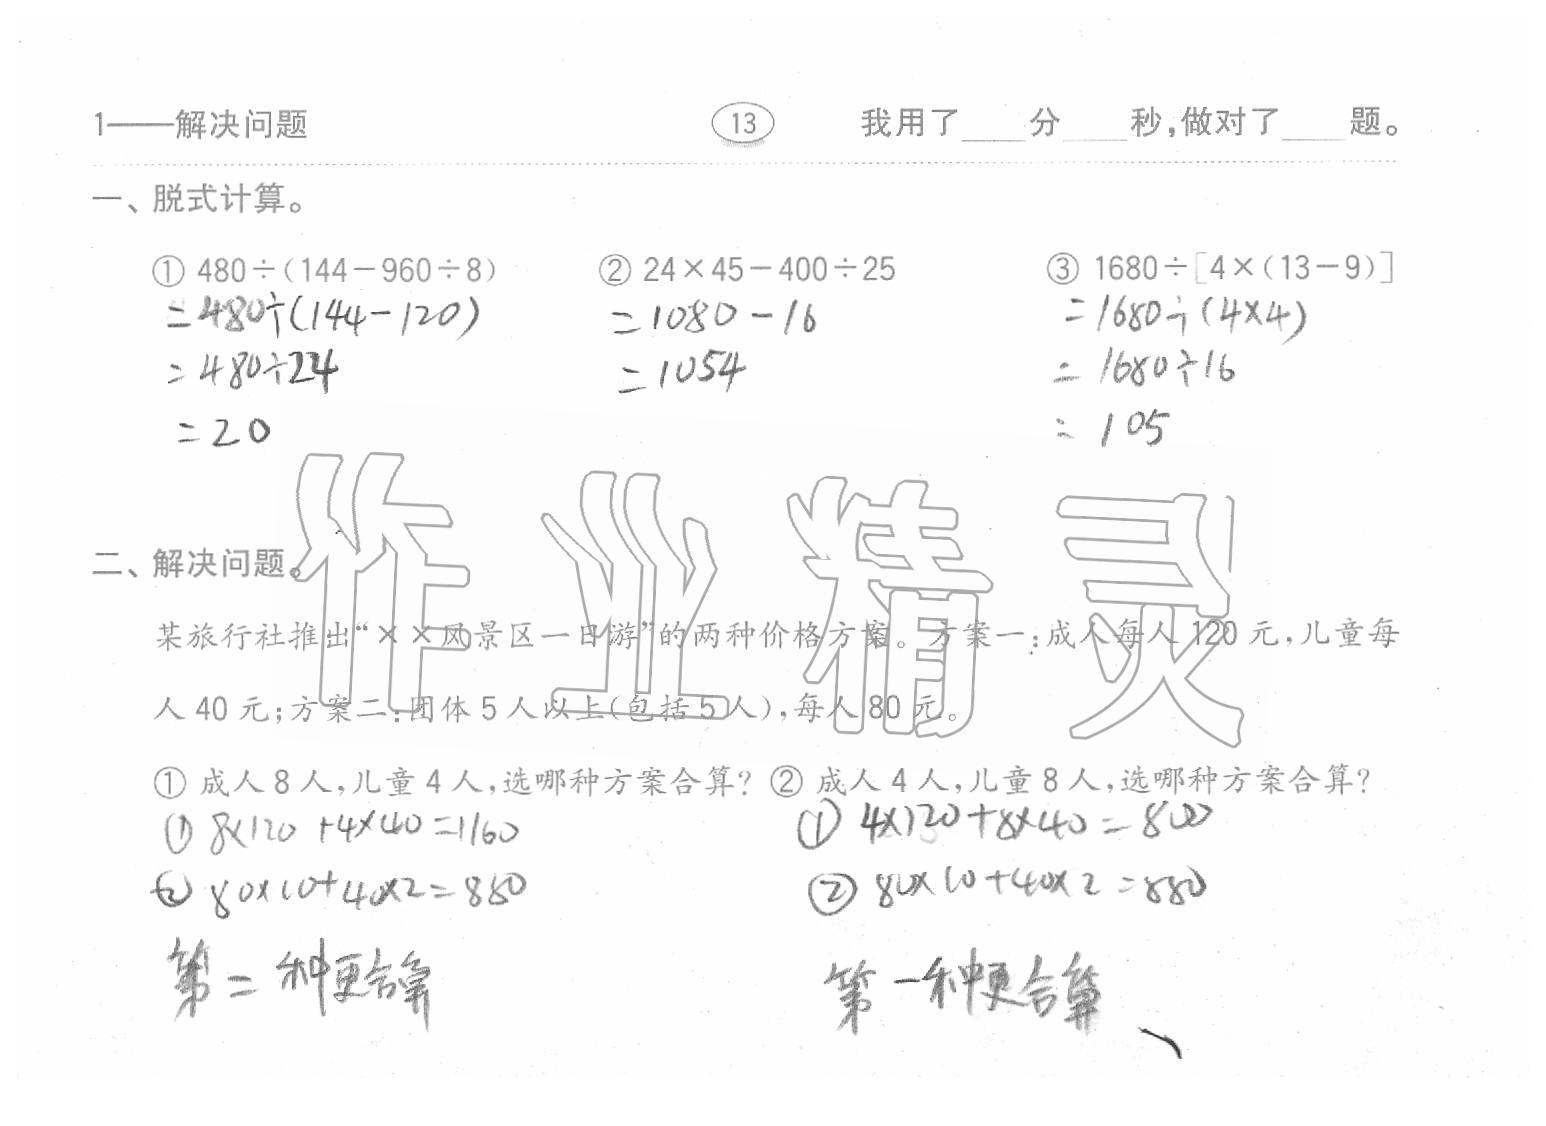 1——解决问题 13 我用了____分____秒,做对了____题。
一、脱式计算。
① 480÷(144-960÷8) ② 24×45-400÷25 ③ 1680÷[4×(13-9)]
=480÷(144-120) =1080-16 =1680÷(4×4)
=480÷24 =1054 =1680÷16
=20 =105
作业精灵
二、解决问题。
某旅行社推出“××风景区一日游”的两种价格方案。方案一:成人每人120元,儿童每
人40元;方案二:团体5人以上(包括5人),每人80元。
① 成人8人,儿童4人,选哪种方案合算? ② 成人4人,儿童8人,选哪种方案合算?
① 8×120+4×40=1160 ① 4×120+8×40=800
② 80×10+40×2=880 ② 80×10+40×2=880
第二种更合算 第一种更合算